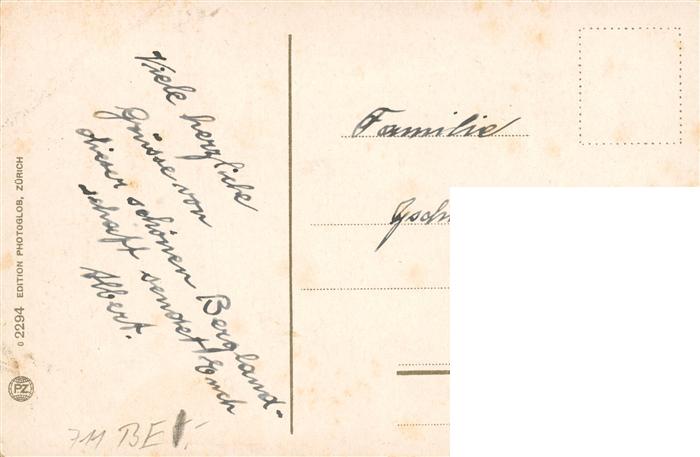 Viele herzliche
Grüsse von
dieser schönen Bergland-
schaft sendet Euch
Albert.
Familie
Gschw
0 2294 EDITION PHOTOGLOB, ZÜRICH
PZ
711 BE